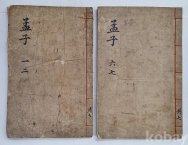 孟子
一二
孟子
六七
kobay